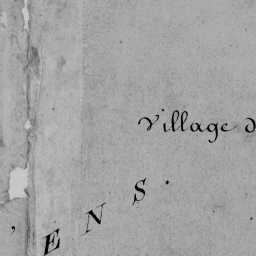 Village d
ENS.